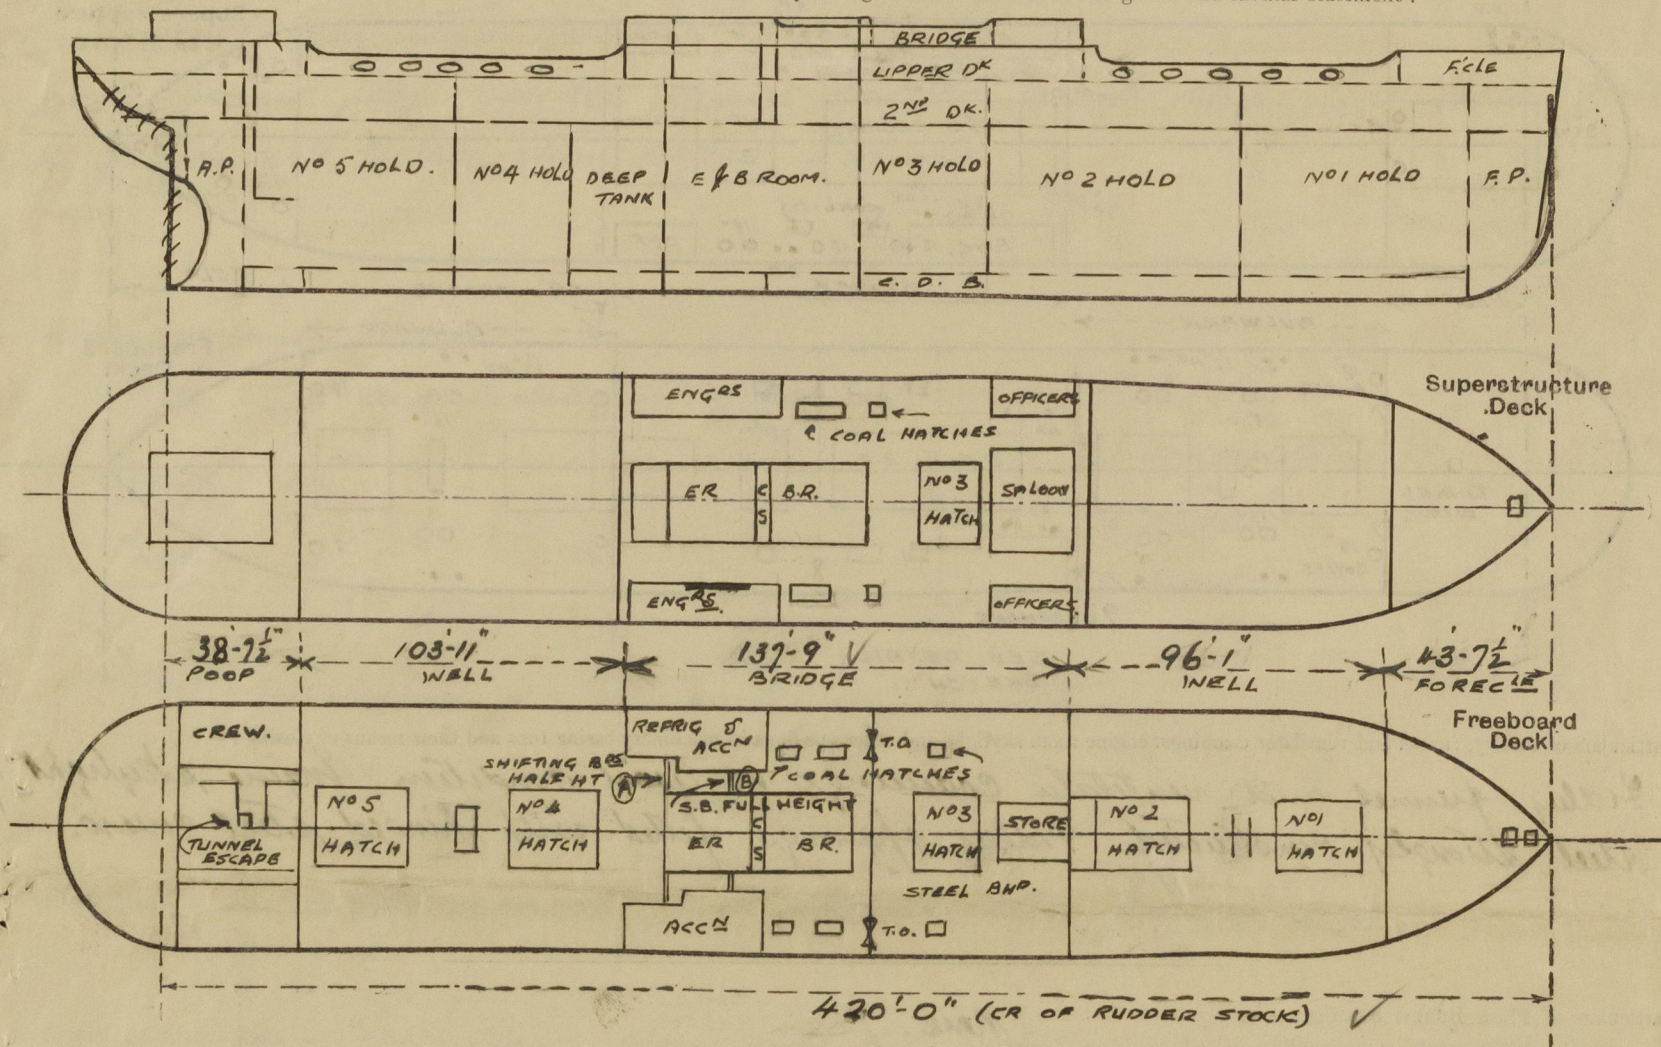 BRIDGE
UPPER DK
F'cLE
2ND DK.
A.P.
No 5 HOLD.
No 4 HOLD
DEEP
TANK
E & B ROOM.
No 3 HOLD
No 2 HOLD
No 1 HOLD
F.P.
C. D. B.
Superstructure
Deck
ENGRS
OFFICERS
COAL HATCHES
ER
C
S
B.R.
No 3
HATCH
SALOON
ENGRS.
OFFICERS.
38'-7½"
POOP
103'-11"
WELL
137'-9"
BRIDGE
96'-1"
WELL
43'-7½"
FORECLE
Freeboard
Deck
CREW.
REFRIG &
ACCN
T.O.
SHIFTING BDS
HALF HT
A
B
COAL HATCHES
S.B. FULL HEIGHT
No 5
HATCH
No 4
HATCH
ER
C
S
BR.
No 3
HATCH
STORE
No 2
HATCH
No 1
HATCH
TUNNEL
ESCAPE
STEEL BHD.
ACCN
T.O.
420'-0" (CR OF RUDDER STOCK)